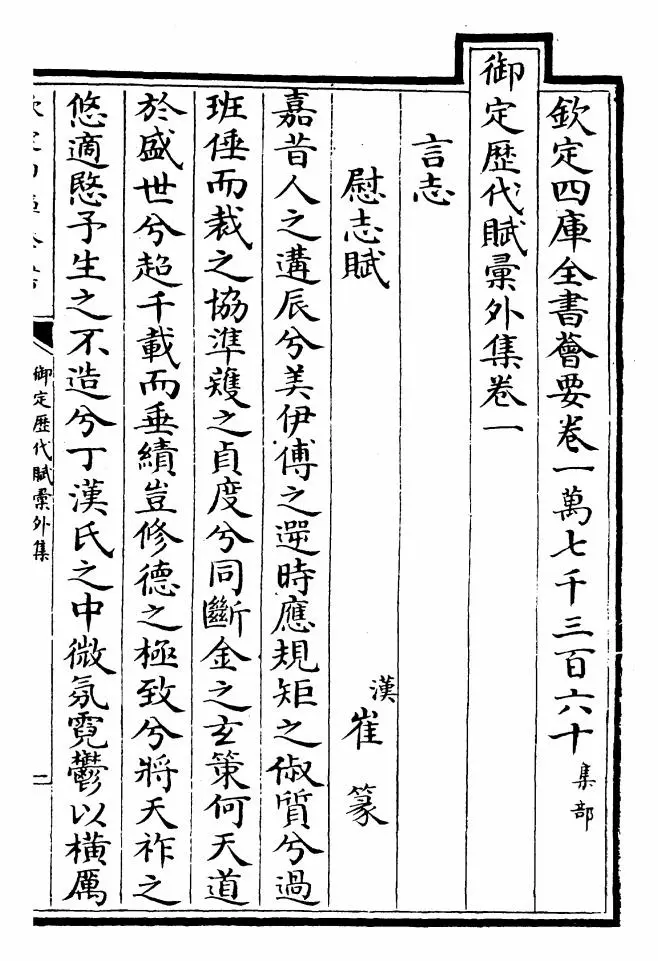 欽定四庫全書薈要卷一萬七千三百六十 集部
御定歴代賦彙外集卷一
言志
慰志賦 漢 崔篆
嘉昔人之遘辰兮美伊傅之遻時應規矩之俶質兮過
班倕而裁之協準矱之貞度兮同斷金之玄策何天道
於盛世兮超千載而垂績豈修德之極致兮將天祚之
悠適愍予生之不造兮丁漢氏之中微氛霓鬱以橫厲
御定歴代賦彙外集